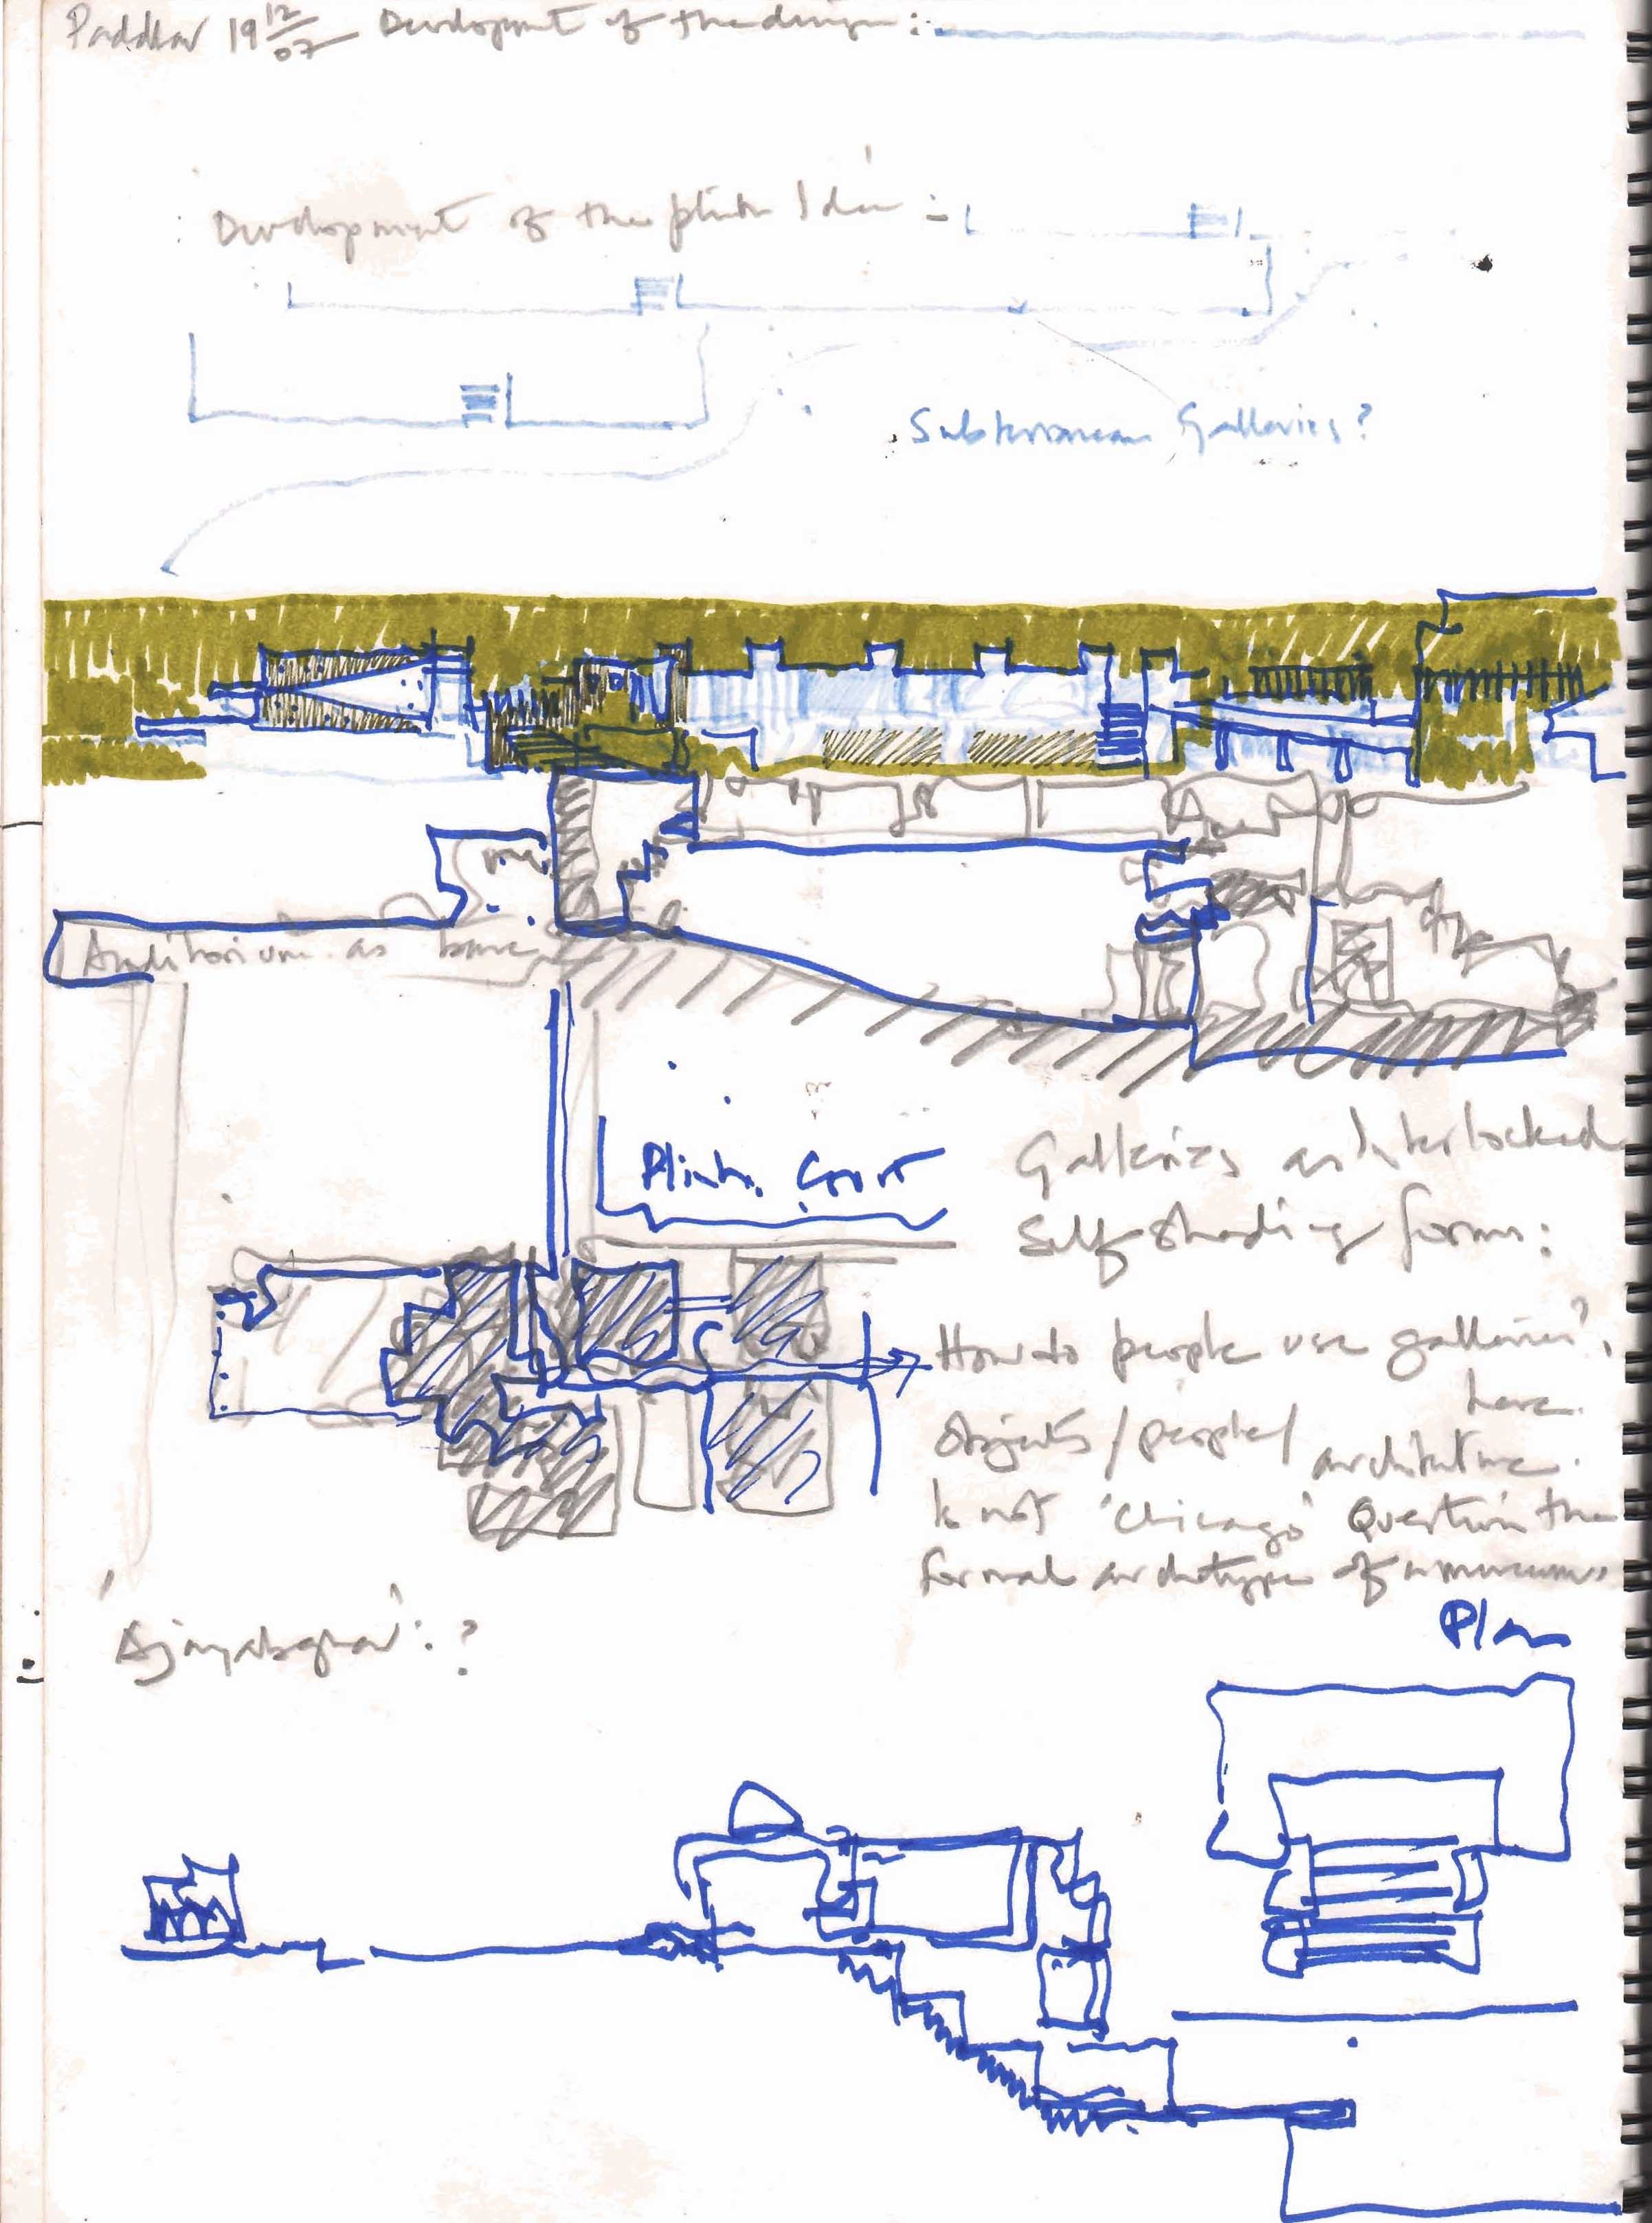 Paddhar 19 12/07 Development of the design:-
Development of the plinth Idea:-
Subterranean Galleries?
Auditorium as base
Plinth Court
Galleries as Interlocked
Self-Shading forms:
How do people use galleries?
here.
Objects/people/ architecture.
is not 'Chicago' Question the
formal archetype of a museum
'Ajayabghar':?
Plan